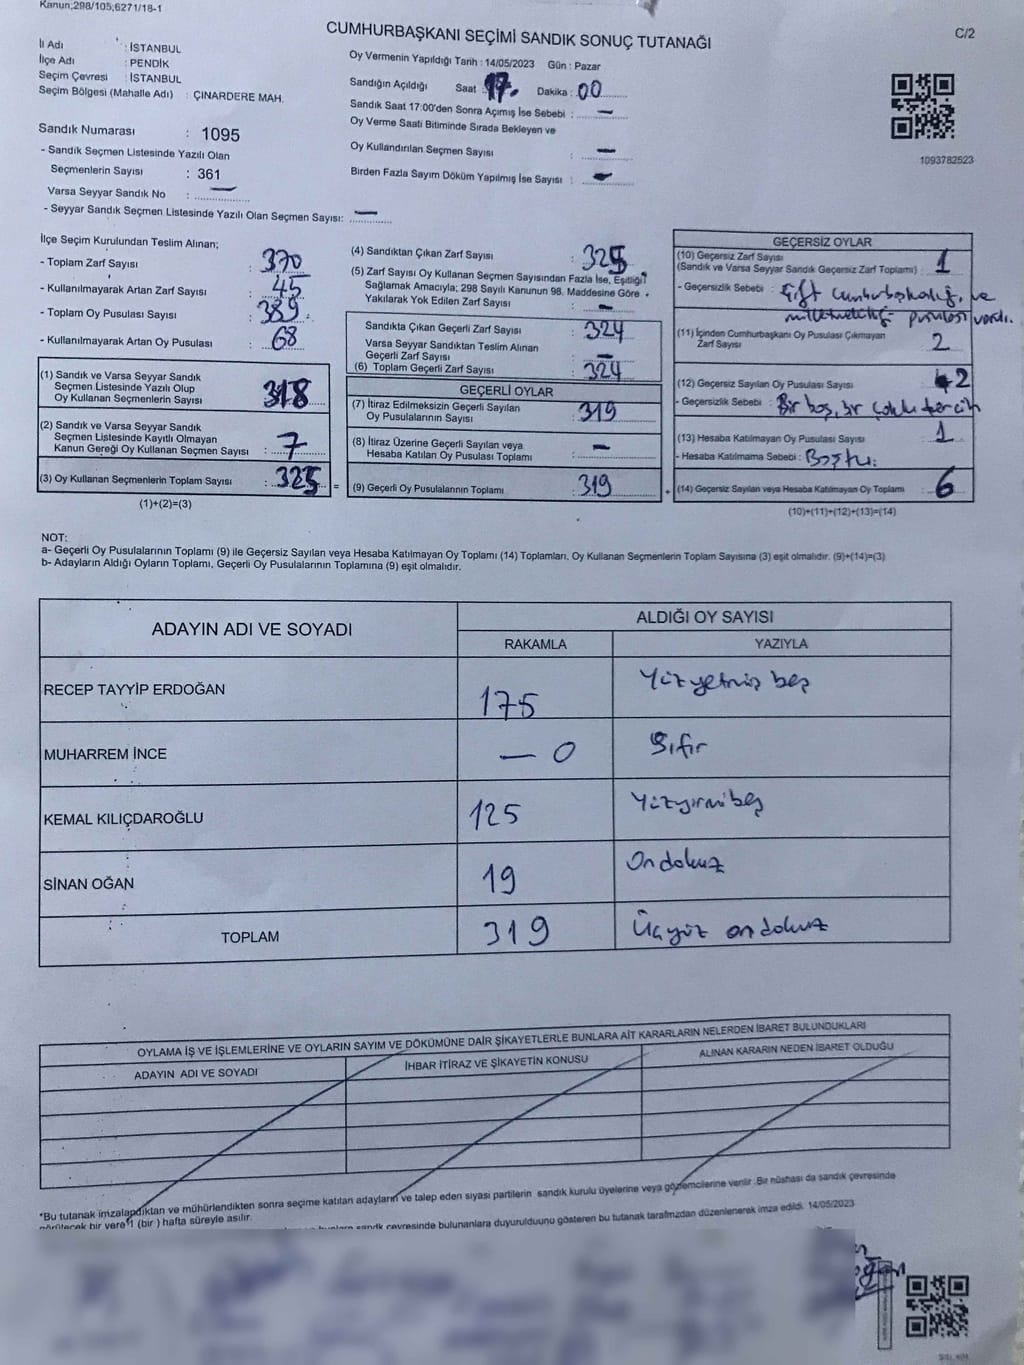 Kanun;298/105;6271/18-1
CUMHURBAŞKANI SEÇİMİ SANDIK SONUÇ TUTANAĞI
C/2
İl Adı : İSTANBUL
İlçe Adı : PENDİK
Seçim Çevresi : İSTANBUL
Seçim Bölgesi (Mahalle Adı) : ÇINARDERE MAH.
Sandık Numarası : 1095
- Sandık Seçmen Listesinde Yazılı Olan
Seçmenlerin Sayısı : 361
Varsa Seyyar Sandık No : —
- Seyyar Sandık Seçmen Listesinde Yazılı Olan Seçmen Sayısı: —
Oy Vermenin Yapıldığı Tarih : 14/05/2023 Gün : Pazar
Sandığın Açıldığı Saat : 17. Dakika : 00
Sandık Saat 17:00'den Sonra Açımış İse Sebebi : —
Oy Verme Saati Bitiminde Sırada Bekleyen ve
Oy Kullandırılan Seçmen Sayısı : —
Birden Fazla Sayım Döküm Yapılmış İse Sayısı : —
1093782523
İlçe Seçim Kurulundan Teslim Alınan;
- Toplam Zarf Sayısı : 370
- Kullanılmayarak Artan Zarf Sayısı : 45
- Toplam Oy Pusulası Sayısı : 389
- Kullanılmayarak Artan Oy Pusulası : 68
(1) Sandık ve Varsa Seyyar Sandık
Seçmen Listesinde Yazılı Olup
Oy Kullanan Seçmenlerin Sayısı : 318
(2) Sandık ve Varsa Seyyar Sandık
Seçmen Listesinde Kayıtlı Olmayan
Kanun Gereği Oy Kullanan Seçmen Sayısı : 7
(3) Oy Kullanan Seçmenlerin Toplam Sayısı : 325 =
(1)+(2)=(3)
(4) Sandıktan Çıkan Zarf Sayısı : 325
(5) Zarf Sayısı Oy Kullanan Seçmen Sayısından Fazla İse, Eşitliği
Sağlamak Amacıyla; 298 Sayılı Kanunun 98. Maddesine Göre
Yakılarak Yok Edilen Zarf Sayısı : —
Sandıkta Çıkan Geçerli Zarf Sayısı : 324
Varsa Seyyar Sandıktan Teslim Alınan
Geçerli Zarf Sayısı : —
(6) Toplam Geçerli Zarf Sayısı : 324
GEÇERLİ OYLAR
(7) İtiraz Edilmeksizin Geçerli Sayılan
Oy Pusulalarının Sayısı : 319
(8) İtiraz Üzerine Geçerli Sayılan veya
Hesaba Katılan Oy Pusulası Toplamı : —
(9) Geçerli Oy Pusulalarının Toplamı : 319 +
GEÇERSİZ OYLAR
(10) Geçersiz Zarf Sayısı
(Sandık ve Varsa Seyyar Sandık Geçersiz Zarf Toplamı) : 1
- Geçersizlik Sebebi : Çift cumhurbaşkanlığı ve
milletvekilliği pusulası vardı.
(11) İçinden Cumhurbaşkanı Oy Pusulası Çıkmayan
Zarf Sayısı : 2
(12) Geçersiz Sayılan Oy Pusulası Sayısı : 2
- Geçersizlik Sebebi : Bir boş, bir çoklu tercih
(13) Hesaba Katılmayan Oy Pusulası Sayısı : 1
- Hesaba Katılmama Sebebi : Boştu.
(14) Geçersiz Sayılan veya Hesaba Katılmayan Oy Toplamı : 6
(10)+(11)+(12)+(13)=(14)
NOT:
a- Geçerli Oy Pusulalarının Toplamı (9) ile Geçersiz Sayılan veya Hesaba Katılmayan Oy Toplamı (14) Toplamları, Oy Kullanan Seçmenlerin Toplam Sayısına (3) eşit olmalıdır. (9)+(14)=(3)
b- Adayların Aldığı Oyların Toplamı, Geçerli Oy Pusulalarının Toplamına (9) eşit olmalıdır.
ADAYIN ADI VE SOYADI ALDIĞI OY SAYISI
RAKAMLA YAZIYLA
RECEP TAYYİP ERDOĞAN 175 Yüzyetmiş beş
MUHARREM İNCE — 0 Sıfır
KEMAL KILIÇDAROĞLU 125 Yüzyirmibeş
SİNAN OĞAN 19 Ondokuz
TOPLAM 319 Üçyüz ondokuz
OYLAMA İŞ VE İŞLEMLERİNE VE OYLARIN SAYIM VE DÖKÜMÜNE DAİR ŞİKAYETLERLE BUNLARA AİT KARARLARIN NELERDEN İBARET BULUNDUKLARI
ADAYIN ADI VE SOYADI İHBAR İTİRAZ VE ŞİKAYETİN KONUSU ALINAN KARARIN NEDEN İBARET OLDUĞU
*Bu tutanak imzalandıktan ve mühürlendikten sonra seçime katılan adayların ve talep eden siyasi partilerin sandık kurulu üyelerine veya gözlemcilerine verilir. Bir nüshası da sandık çevresinde
görülecek bir yere 1 (bir ) hafta süreyle asılır.
sandık çevresinde bulunanlara duyurulduunu gösteren bu tutanak tarafımzdan düzenlenerek imza edildi. 14/05/2023